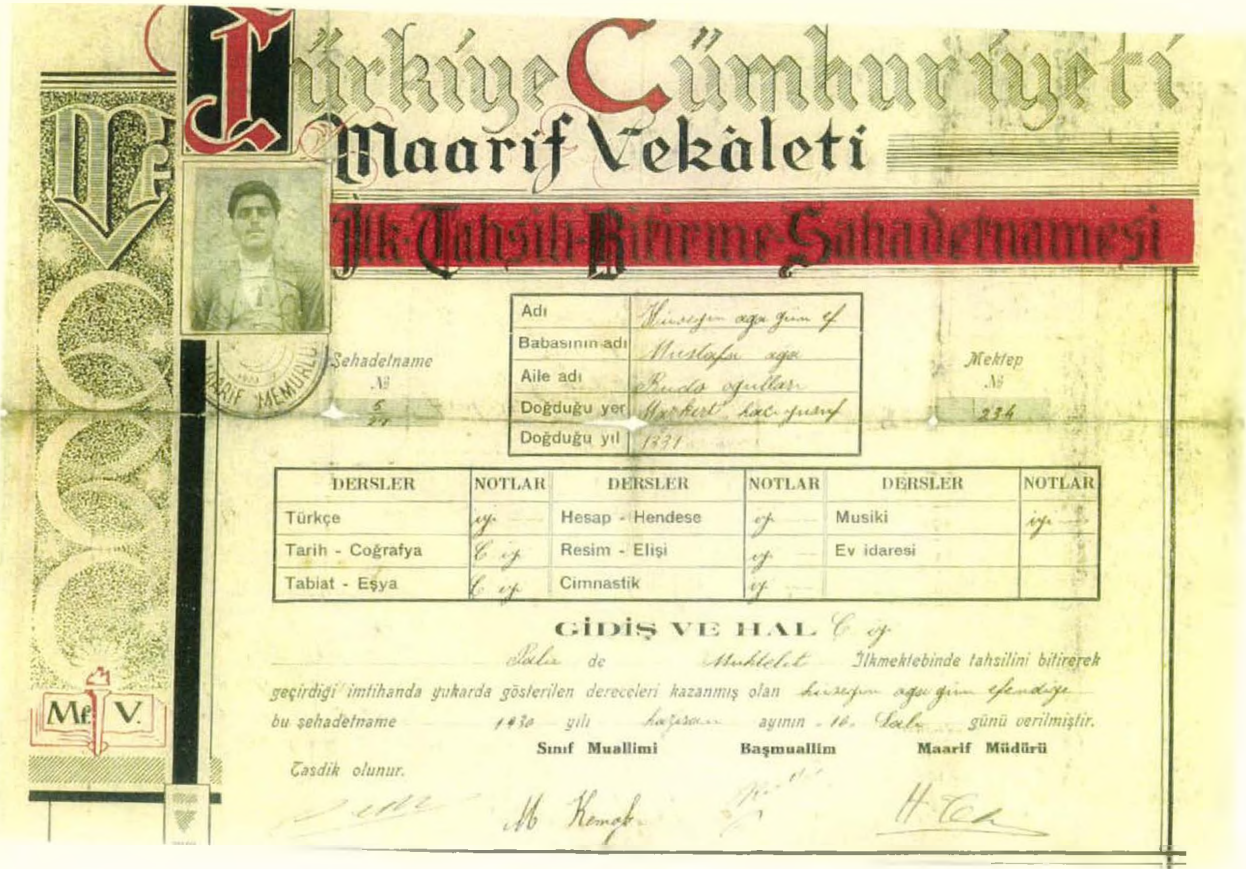 Türkiye Cümhuriyeti
Maarif Vekâleti
İlk-Tahsili-Bitirme-Şahadetnamesi
Mf V
MAARİF MEMURLUĞU
Şehadetname
№
5
Mektep
№
234
Adı Hüseyin aga gün ef
Babasının adı Mustafa aga
Aile adı ogulları
Doğduğu yer haci yusuf
Doğduğu yıl 1331
DERSLER NOTLAR DERSLER NOTLAR DERSLER NOTLAR
Türkçe iyi Hesap - Hendese iyi Musiki iyi
Tarih - Coğrafya Ç iyi Resim - Elişi iyi Ev idaresi
Tabiat - Eşya Ç iyi Cimnastik iyi
GİDİŞ VE HAL Ç iyi
de Muhtelit İlkmektebinde tahsilini bitirerek
geçirdiği imtihanda yukarda gösterilen dereceleri kazanmış olan hüseyin aga gün efendiye
bu şehadetname 1930 yılı haziran ayının 16 günü verilmiştir.
Sınıf Muallimi Başmuallim Maarif Müdürü
Tasdik olunur.
M Kemal
Mf. V.